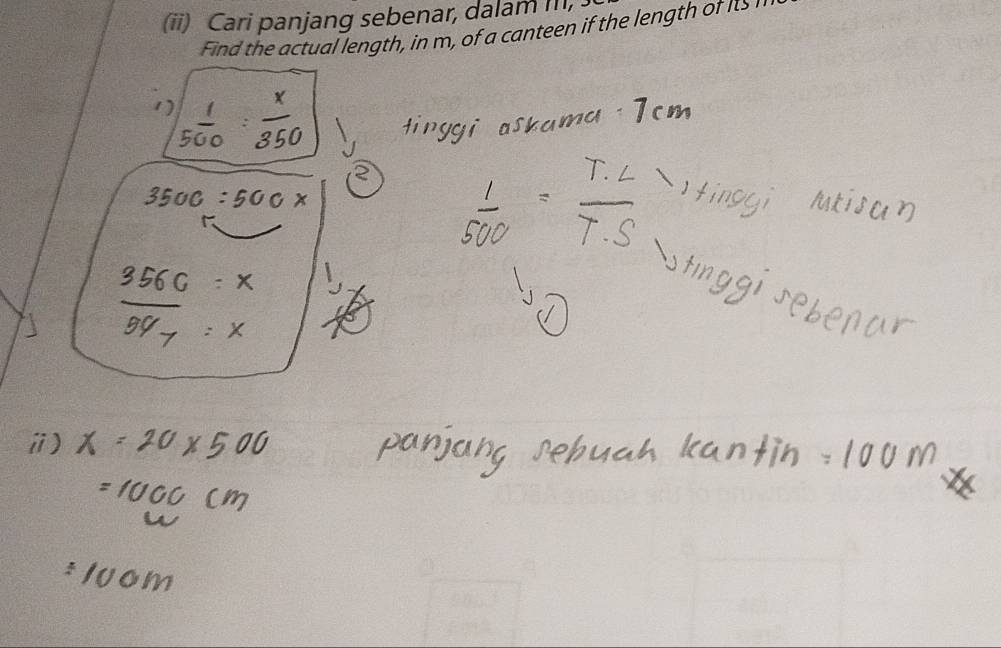 (ii) Cari panjang sebenar, dalam m,
Find the actual length, in m, of a canteen if the length of its
i) 1/500 = x/350
tinggi askama = 7cm
②
3500 = 500x
1/500 = T.L/T.S
tinggi lukisan
tinggi sebenar
①
= x
7 = x
ii) x = 20 x 500
panjang sebuah kantin = 100m
= 1000 cm
= 100m